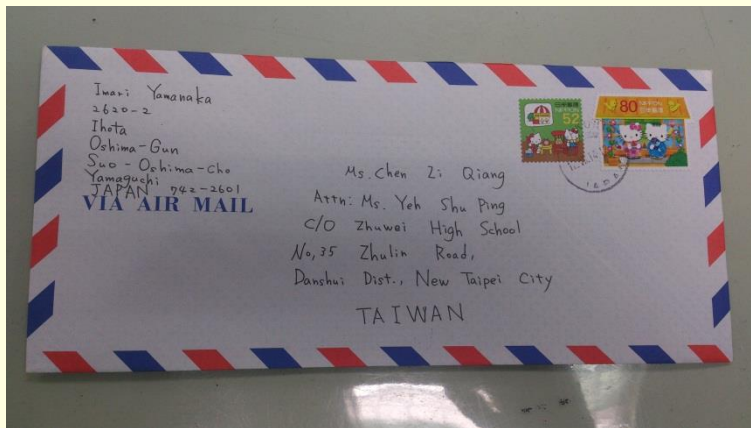 Imari Yamanaka
2620-2
Ihota
Oshima-Gun
Suo-Oshima-Cho
Yamaguchi
JAPAN 742-2601
VIA AIR MAIL
52
80 NIPPON
Ms. Chen Zi Qiang
Attn: Ms. Yeh Shu Ping
C/O Zhuwei High School
No,35 Zhulin Road,
Danshui Dist., New Taipei City
TAIWAN
JAPAN